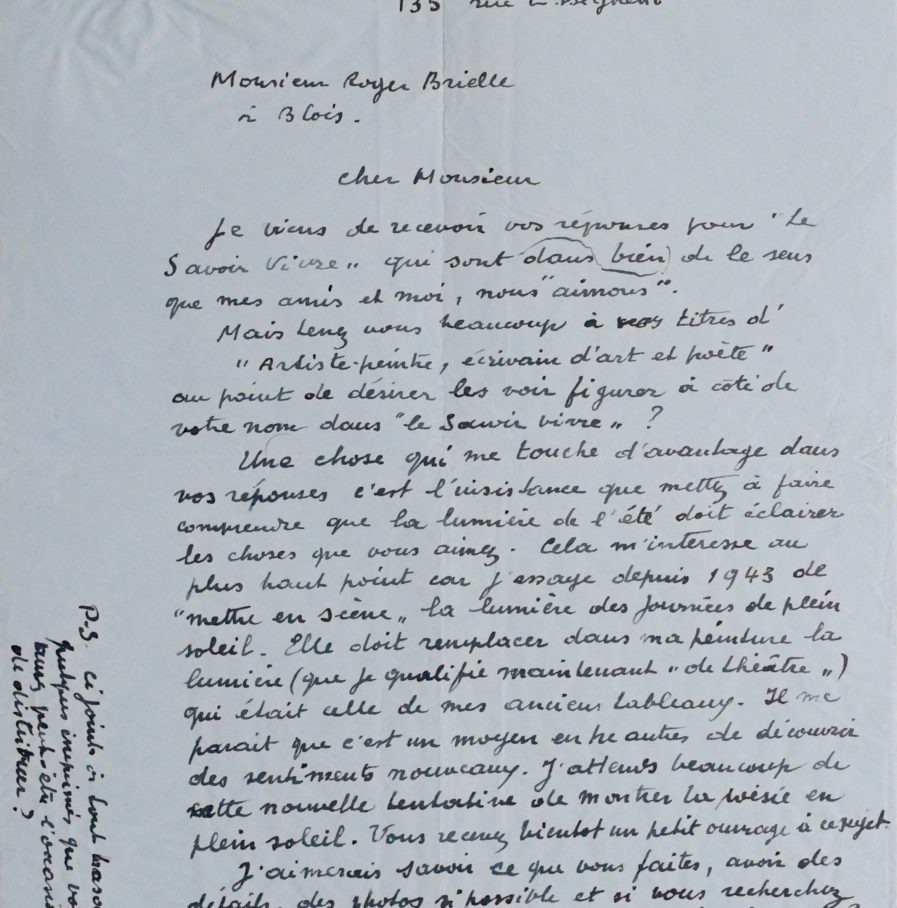 135 rue
Monsieur Roger Brielle
à Blois.
Cher Monsieur
Je viens de recevoir vos réponses pour "Le
Savoir Vivre" qui sont dans bien de le sens
que mes amis et moi, nous "aimons".
Mais tenez vous beaucoup à vos titres d'
"Artiste-peintre, écrivain d'art et poète"
au point de désirer les voir figurer à côté de
votre nom dans "le Savoir vivre" ?
Une chose qui me touche d'avantage dans
vos réponses c'est l'insistance que mettez à faire
comprendre que la lumière de l'été doit éclairer
les choses que vous aimez. Cela m'intéresse au
plus haut point car j'essaye depuis 1943 de
"mettre en scène" la lumière des journées de plein
soleil. Elle doit remplacer dans ma peinture la
lumière (que je qualifie maintenant "de théâtre")
qui était celle de mes anciens tableaux. Il me
parait que c'est un moyen entre autres de découvrir
des sentiments nouveaux. J'attends beaucoup de
cette nouvelle tentative de montrer la poésie en
plein soleil. Vous recevrez bientot un petit ouvrage à ce sujet.
J'aimerais savoir ce que vous faites, avoir des
détails, des photos si possible et si vous recherchez
P.S. ci joints à tout hasard
quelques imprimés que vo
aurez peut-être l'occasi
de distribuer ?